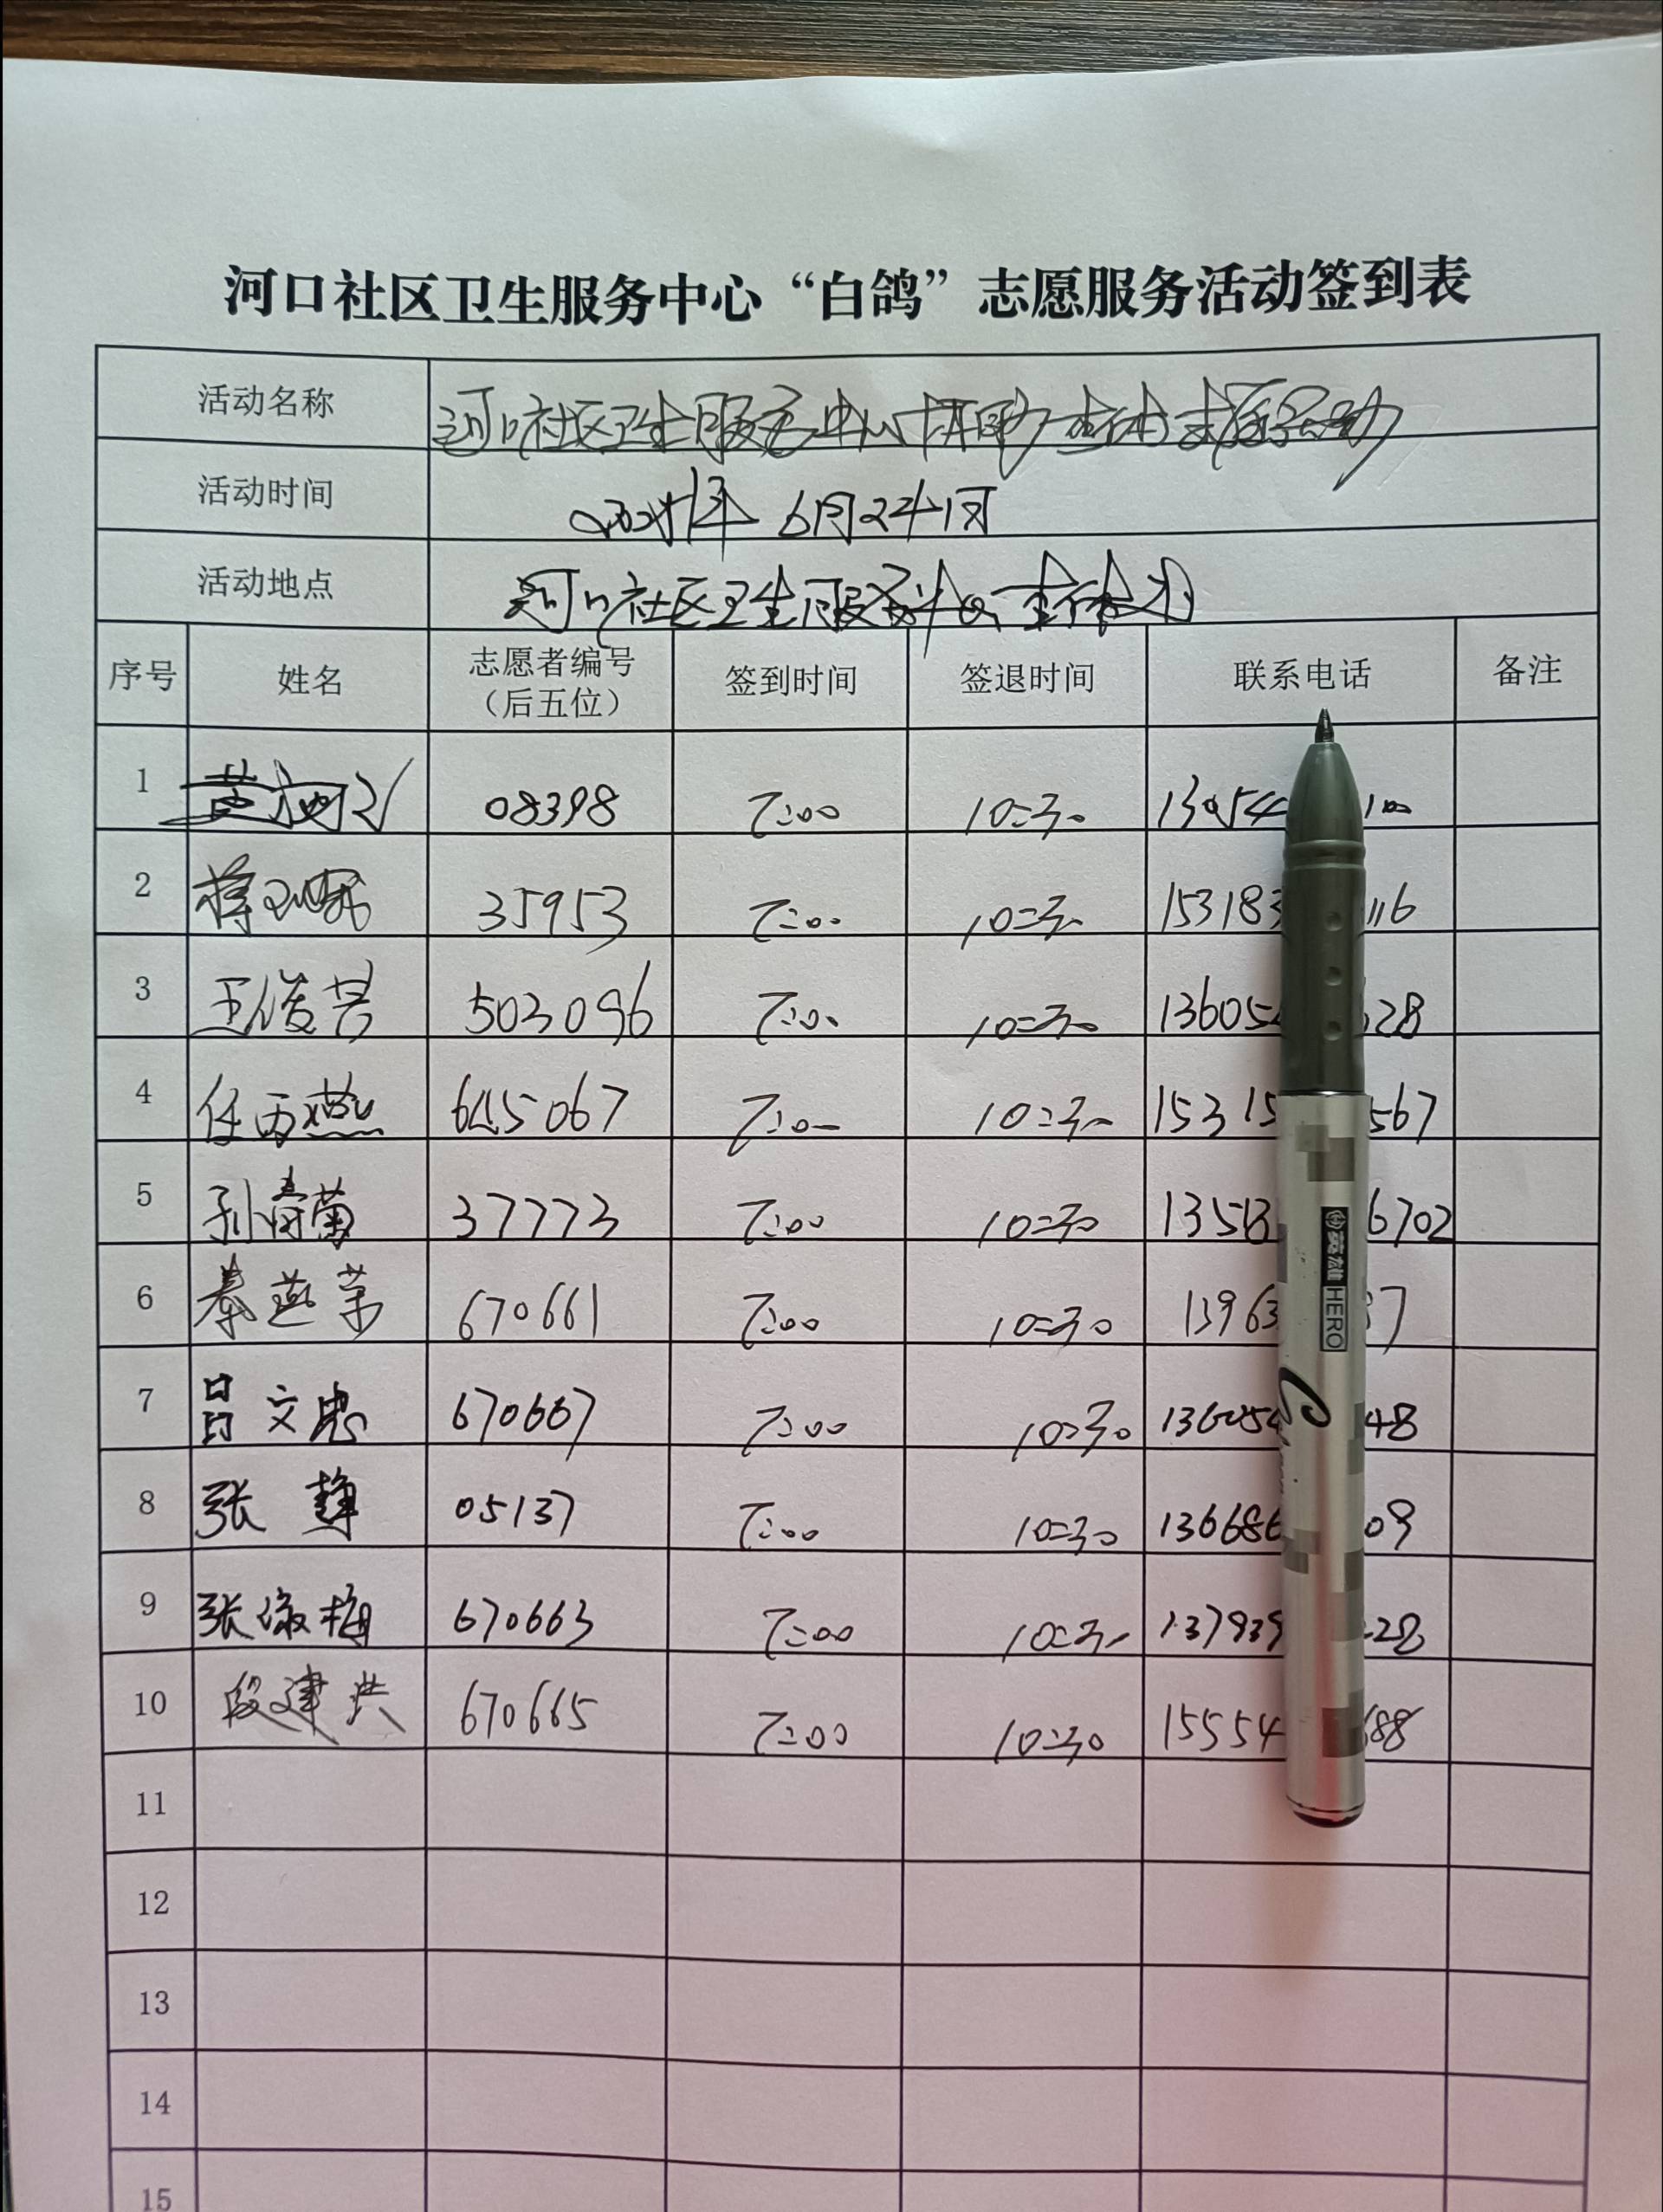 河口社区卫生服务中心“白鸽”志愿服务活动签到表
活动名称 河口社区卫生服务中心
活动时间 6月24日
活动地点 河口社区卫生服务中心
序号 姓名 志愿者编号（后五位） 签到时间 签退时间 联系电话 备注
1 08398 7:00 10:30 13054 100
2 35953 7:00 10:30 153183 116
3 王俊芸 503096 7:00 10:30 13605 28
4 任西燕 645067 7:00 10:30 15315 567
5 孙青菊 37773 7:00 10:30 1358 6702
6 秦燕荣 670661 7:00 10:30 13963 7
7 吕文忠 670667 7:00 10:30 136054 48
8 张静 05137 7:00 10:30 136686 09
9 张淑梅 670663 7:00 10:30 137939 28
10 段建洪 670665 7:00 10:30 15554 688
11
12
13
14
15
英雄 HERO